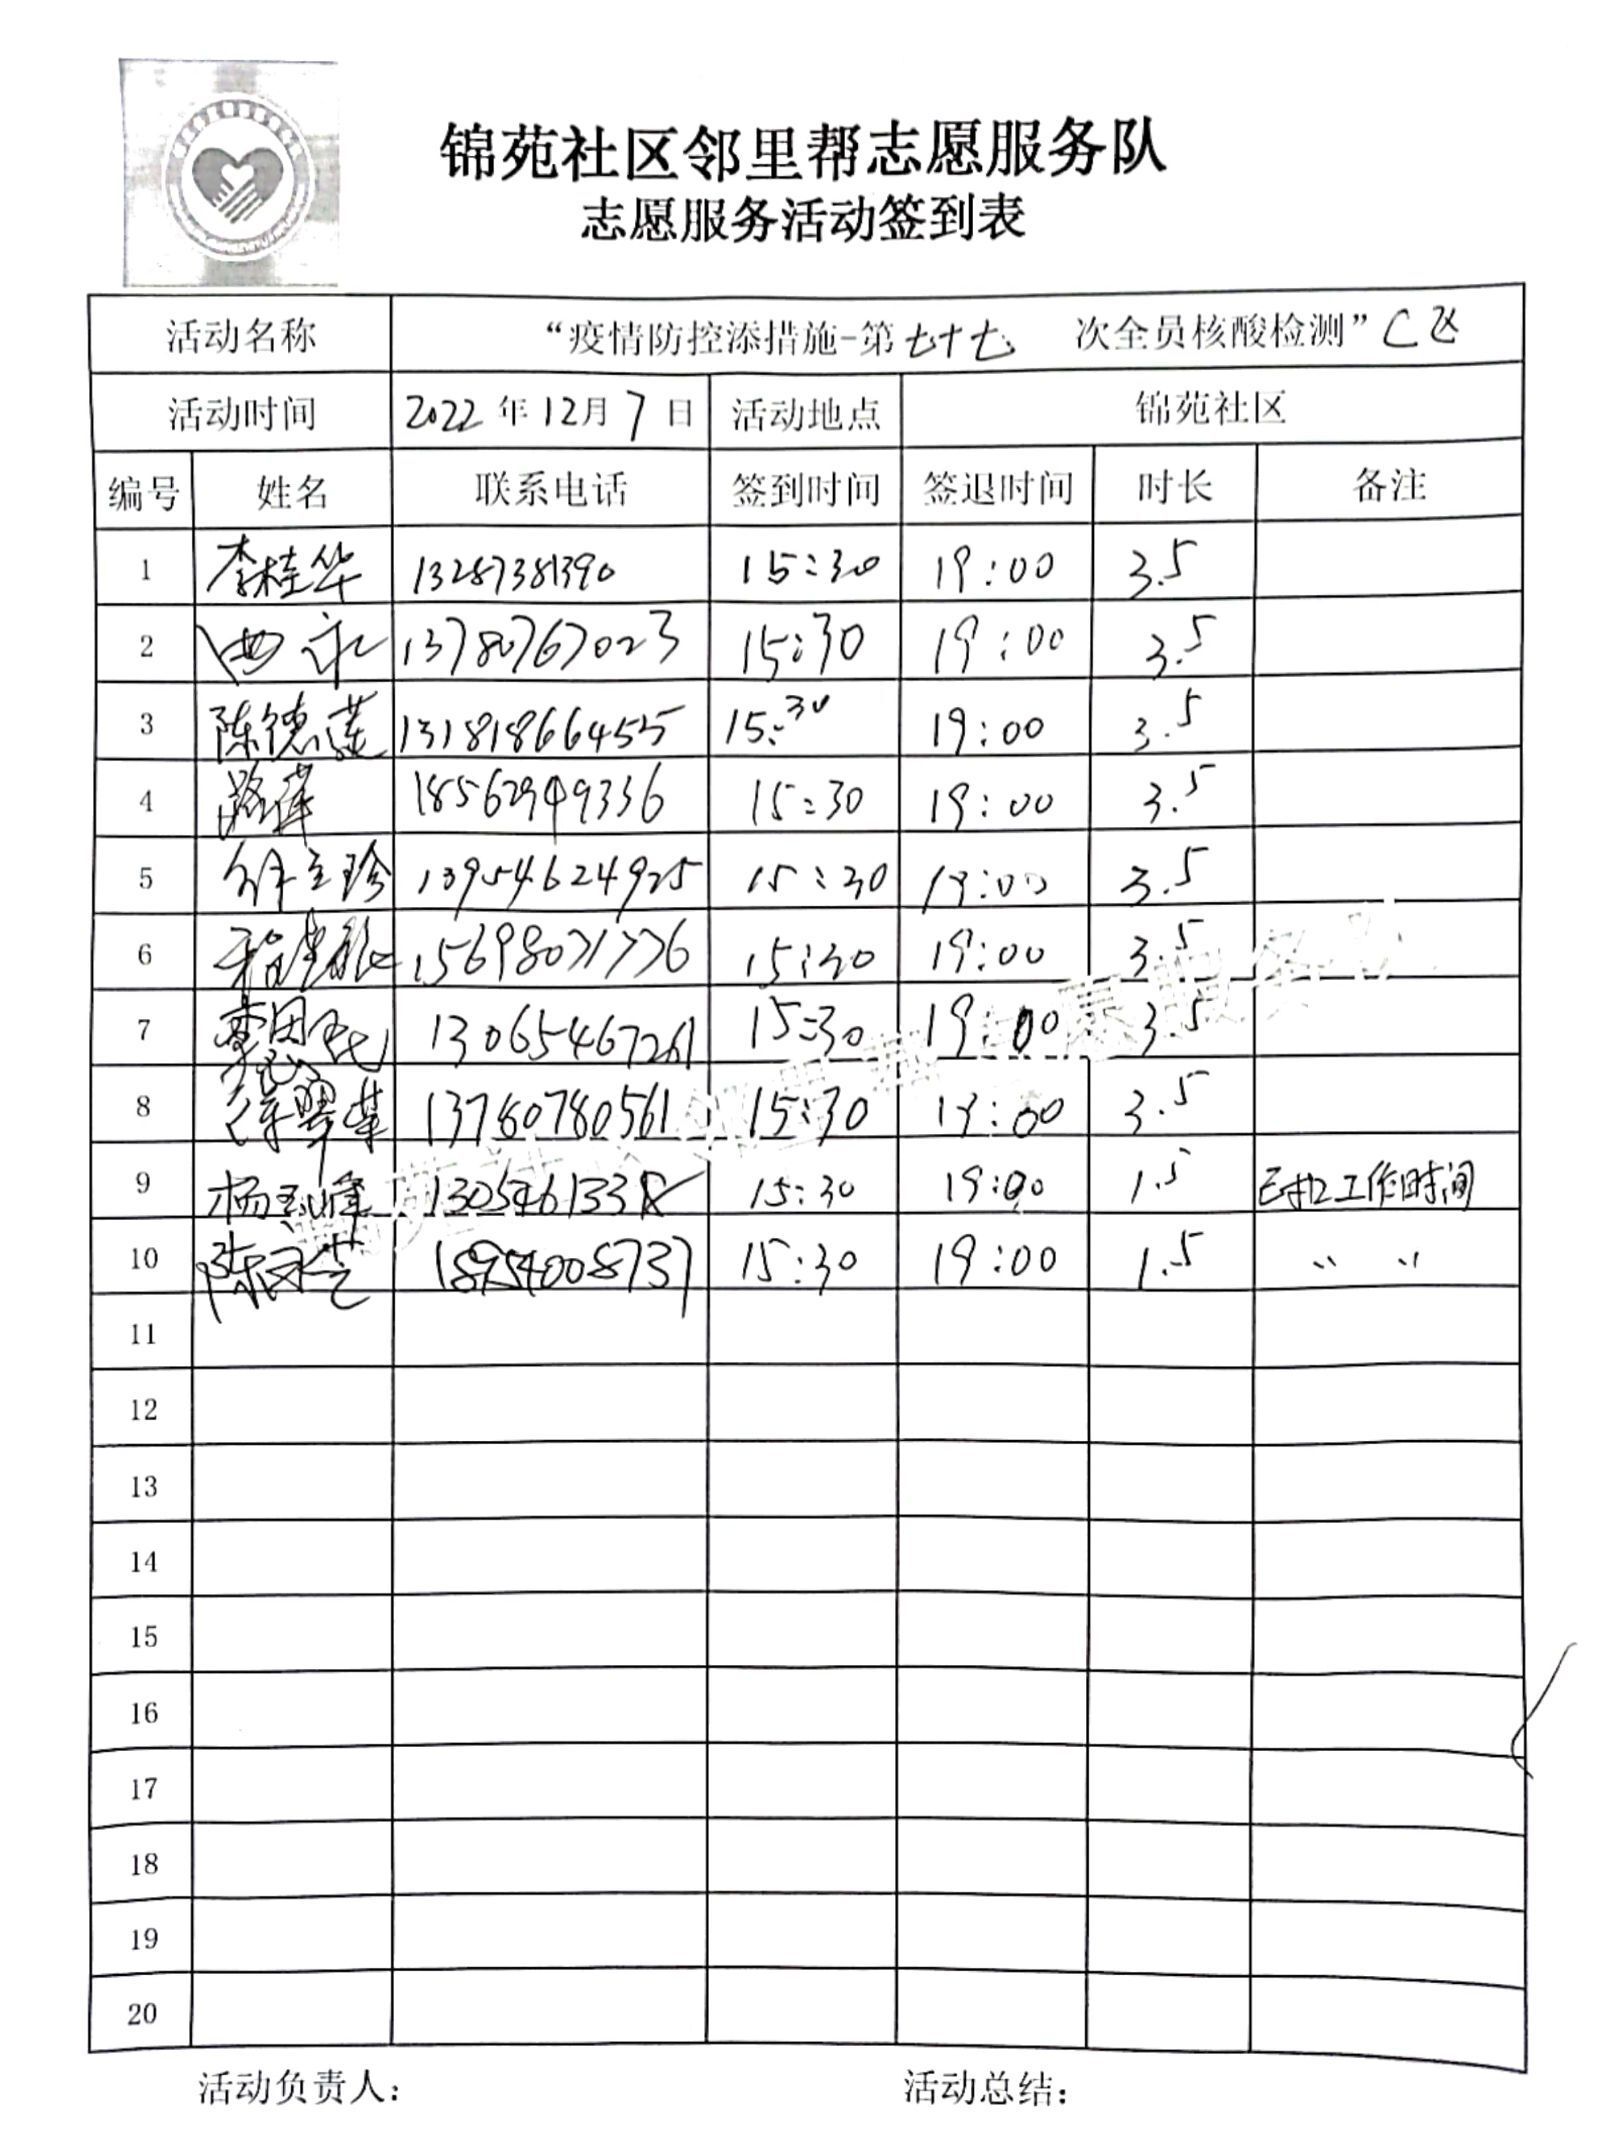 锦苑社区邻里帮志愿服务队
志愿服务活动签到表
活动名称 “疫情防控添措施-第七十七 次全员核酸检测” C区
活动时间 2022年12月7日 活动地点 锦苑社区
编号 姓名 联系电话 签到时间 签退时间 时长 备注
1 李桂华 13287381390 15:30 19:00 3.5
2 13780767023 15:30 19:00 3.5
3 陈德莲 131818664555 15:30 19:00 3.5
4 18562949336 15:30 19:00 3.5
5 13954624925 15:30 19:00 3.5
6 15698071776 15:30 19:00 3.5
7 13065467261 15:30 19:00 3.5
8 徐翠英 13780780561 15:30 19:00 3.5
9 杨玉峰 15:30 19:00 1.5 已扣工作时间
10 18954008737 15:30 19:00 1.5 〃 〃
11
12
13
14
15
16
17
18
19
20
活动负责人： 活动总结：